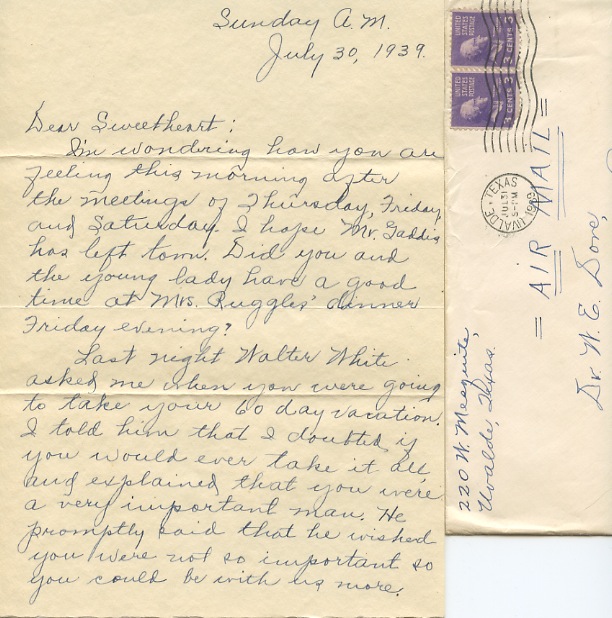 Sunday A.M.
July 30, 1939.
Dear Sweetheart:
I'm wondering how you are
feeling this morning after
the meetings of Thursday, Friday,
and Saturday. I hope Mr. Gaddis
has left town. Did you and
the young lady have a good
time at Mrs. Ruggles' dinner
Friday evening?
Last night Walter White
asked me when you were going
to take your 60 day vacation.
I told him that I doubted if
you would ever take it all,
and explained that you were
a very important man. He
promptly said that he wished
you were not so important so
you could be with us more.
UNITED STATES POSTAGE
3 CENTS 3
UNITED STATES POSTAGE
3 CENTS 3
UVALDE, TEXAS
JUL 31
5-PM
1939
= AIR MAIL =
Dr. W. E. Dove,
220 W. Mesquite,
Uvalde, Texas.